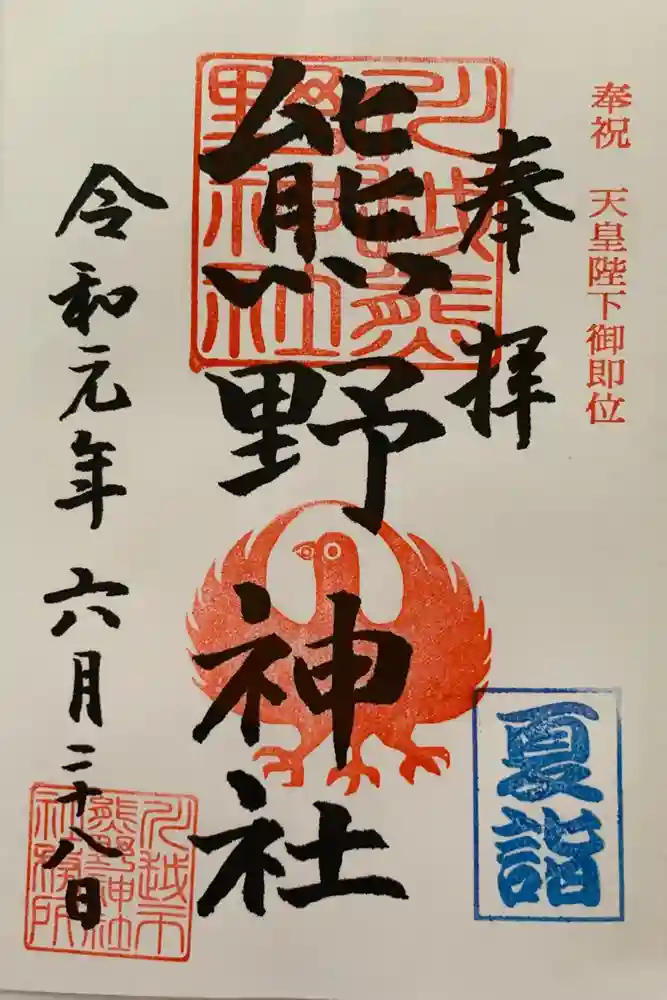 奉祝 天皇陛下御即位
奉拝
熊野神社
川越熊野神社
夏詣
令和元年 六月二十八日
川越市熊野神社社務所